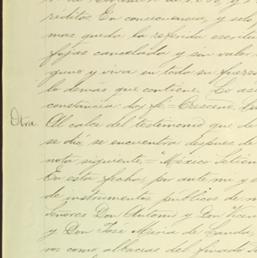 réditos. En consecuencia, y solo
mas queda la referida escritu
fijas cancelada y sin valor
guno y viva en toda su fuerza
lo demas que contiene. Lo
constancia doy fe =
Otra. Al calce del testimonio que de
se dió, se encuentra despues de
nota siguiente = México
En esta fecha, por ante mi y
de instrumentos públicos de
Señores Don Antonio y Don
y Don José Maria de
vos como albaceas del finado